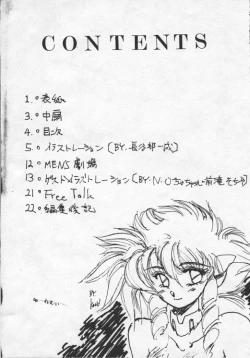 CONTENTS
1.○表紙
3.○中扉
4.○目次
5.○イラストレーション〔BY.長谷部一成〕
12.○MENS劇場
13.○ゲストイラストレーション〔BY.N.O
21.○Free Talk
22.○編集後記
BY.